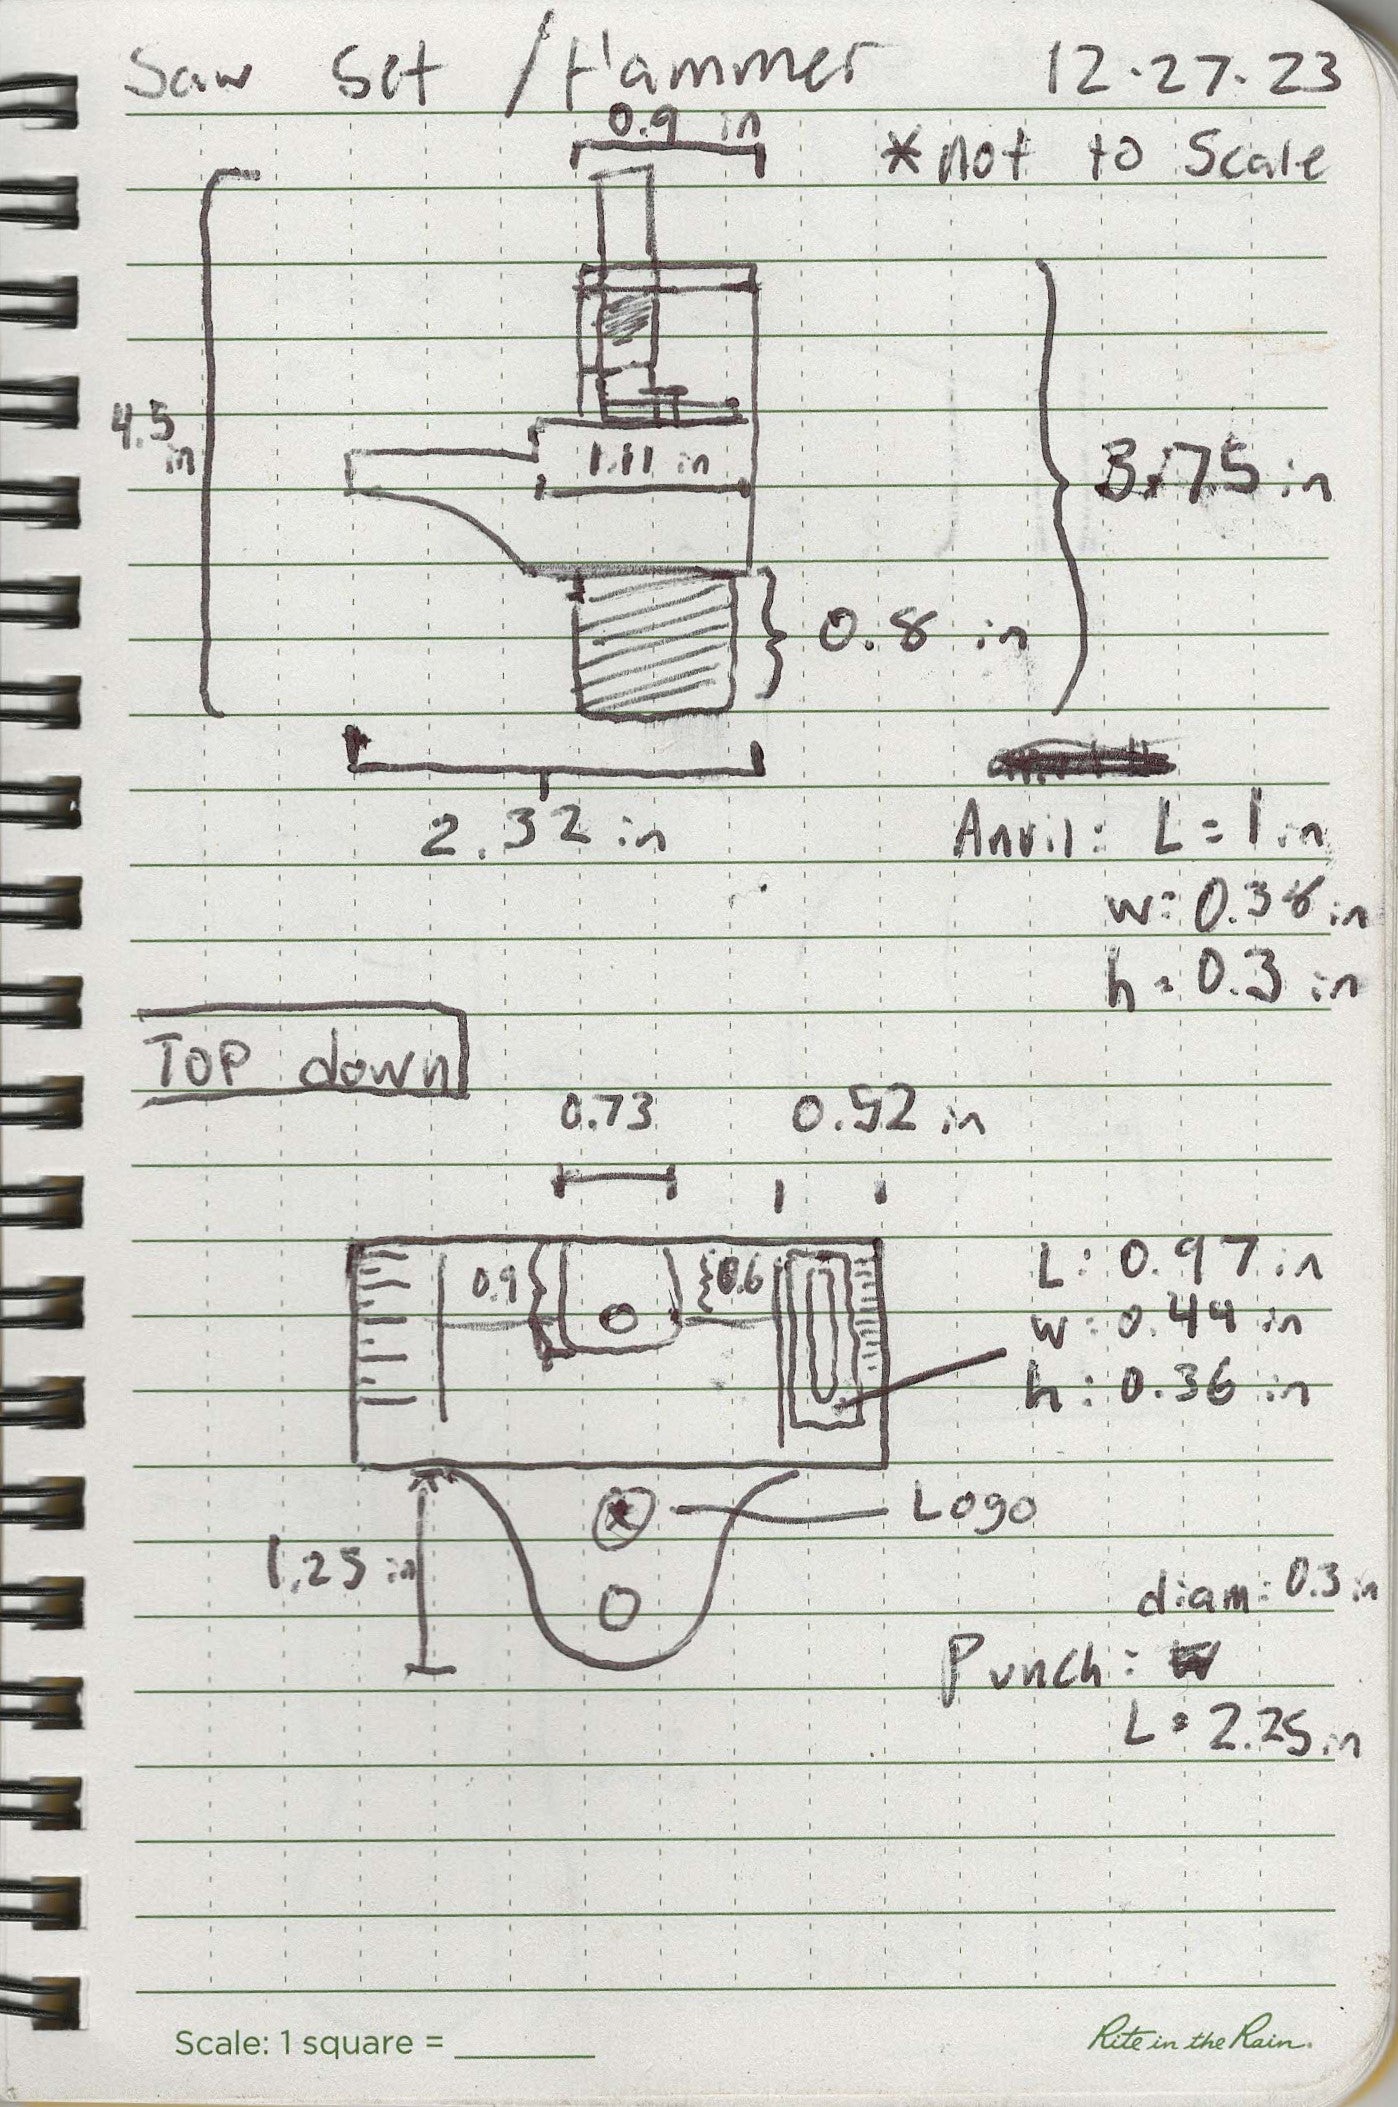 Saw Set / Hammer 12.27.23
0.9 in
*not to Scale
4.5 in
1.11 in
3.75 in
0.8 in
2.32 in
Anvil: L = 1 in
w: 0.38 in
h = 0.3 in
TOP down
0.73 0.52 in
0.9 0.6
L: 0.97 in
w: 0.44 in
h: 0.36 in
Logo
1.25 in
diam: 0.3 in
Punch:
L = 2.25 in
Scale: 1 square = ______
Rite in the Rain.